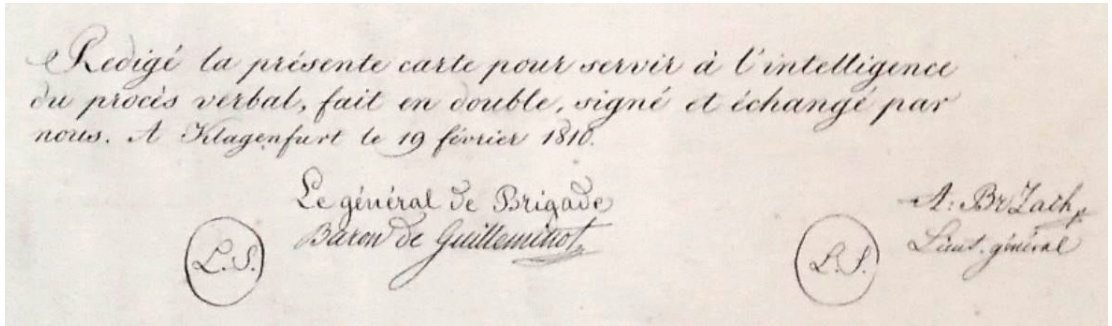 Redigé la présente carte pour servir à l'intelligence
du procès verbal, fait en double, signé et échangé par
nous. A Klagenfurt le 19 février 1810.
Le général de Brigade
Baron de Guilleminot
L.S.
A: Br Zach
Lieut. général
L.S.